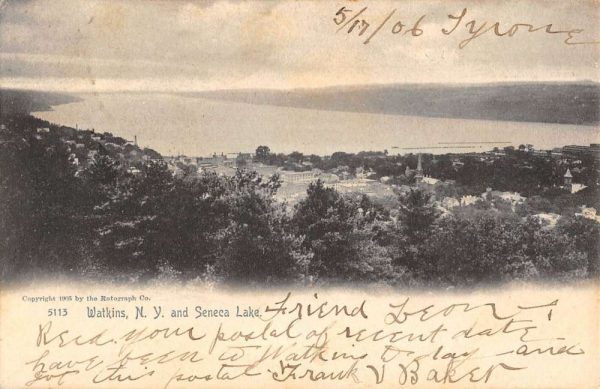 5/17/06 Tyrone
Copyright 1905 by the Rotograph Co.
5113 Watkins, N. Y. and Seneca Lake.
Friend Leon -
Recd. your postal of recent date
have been to Watkins to day - and
got this postal Frank V Baker